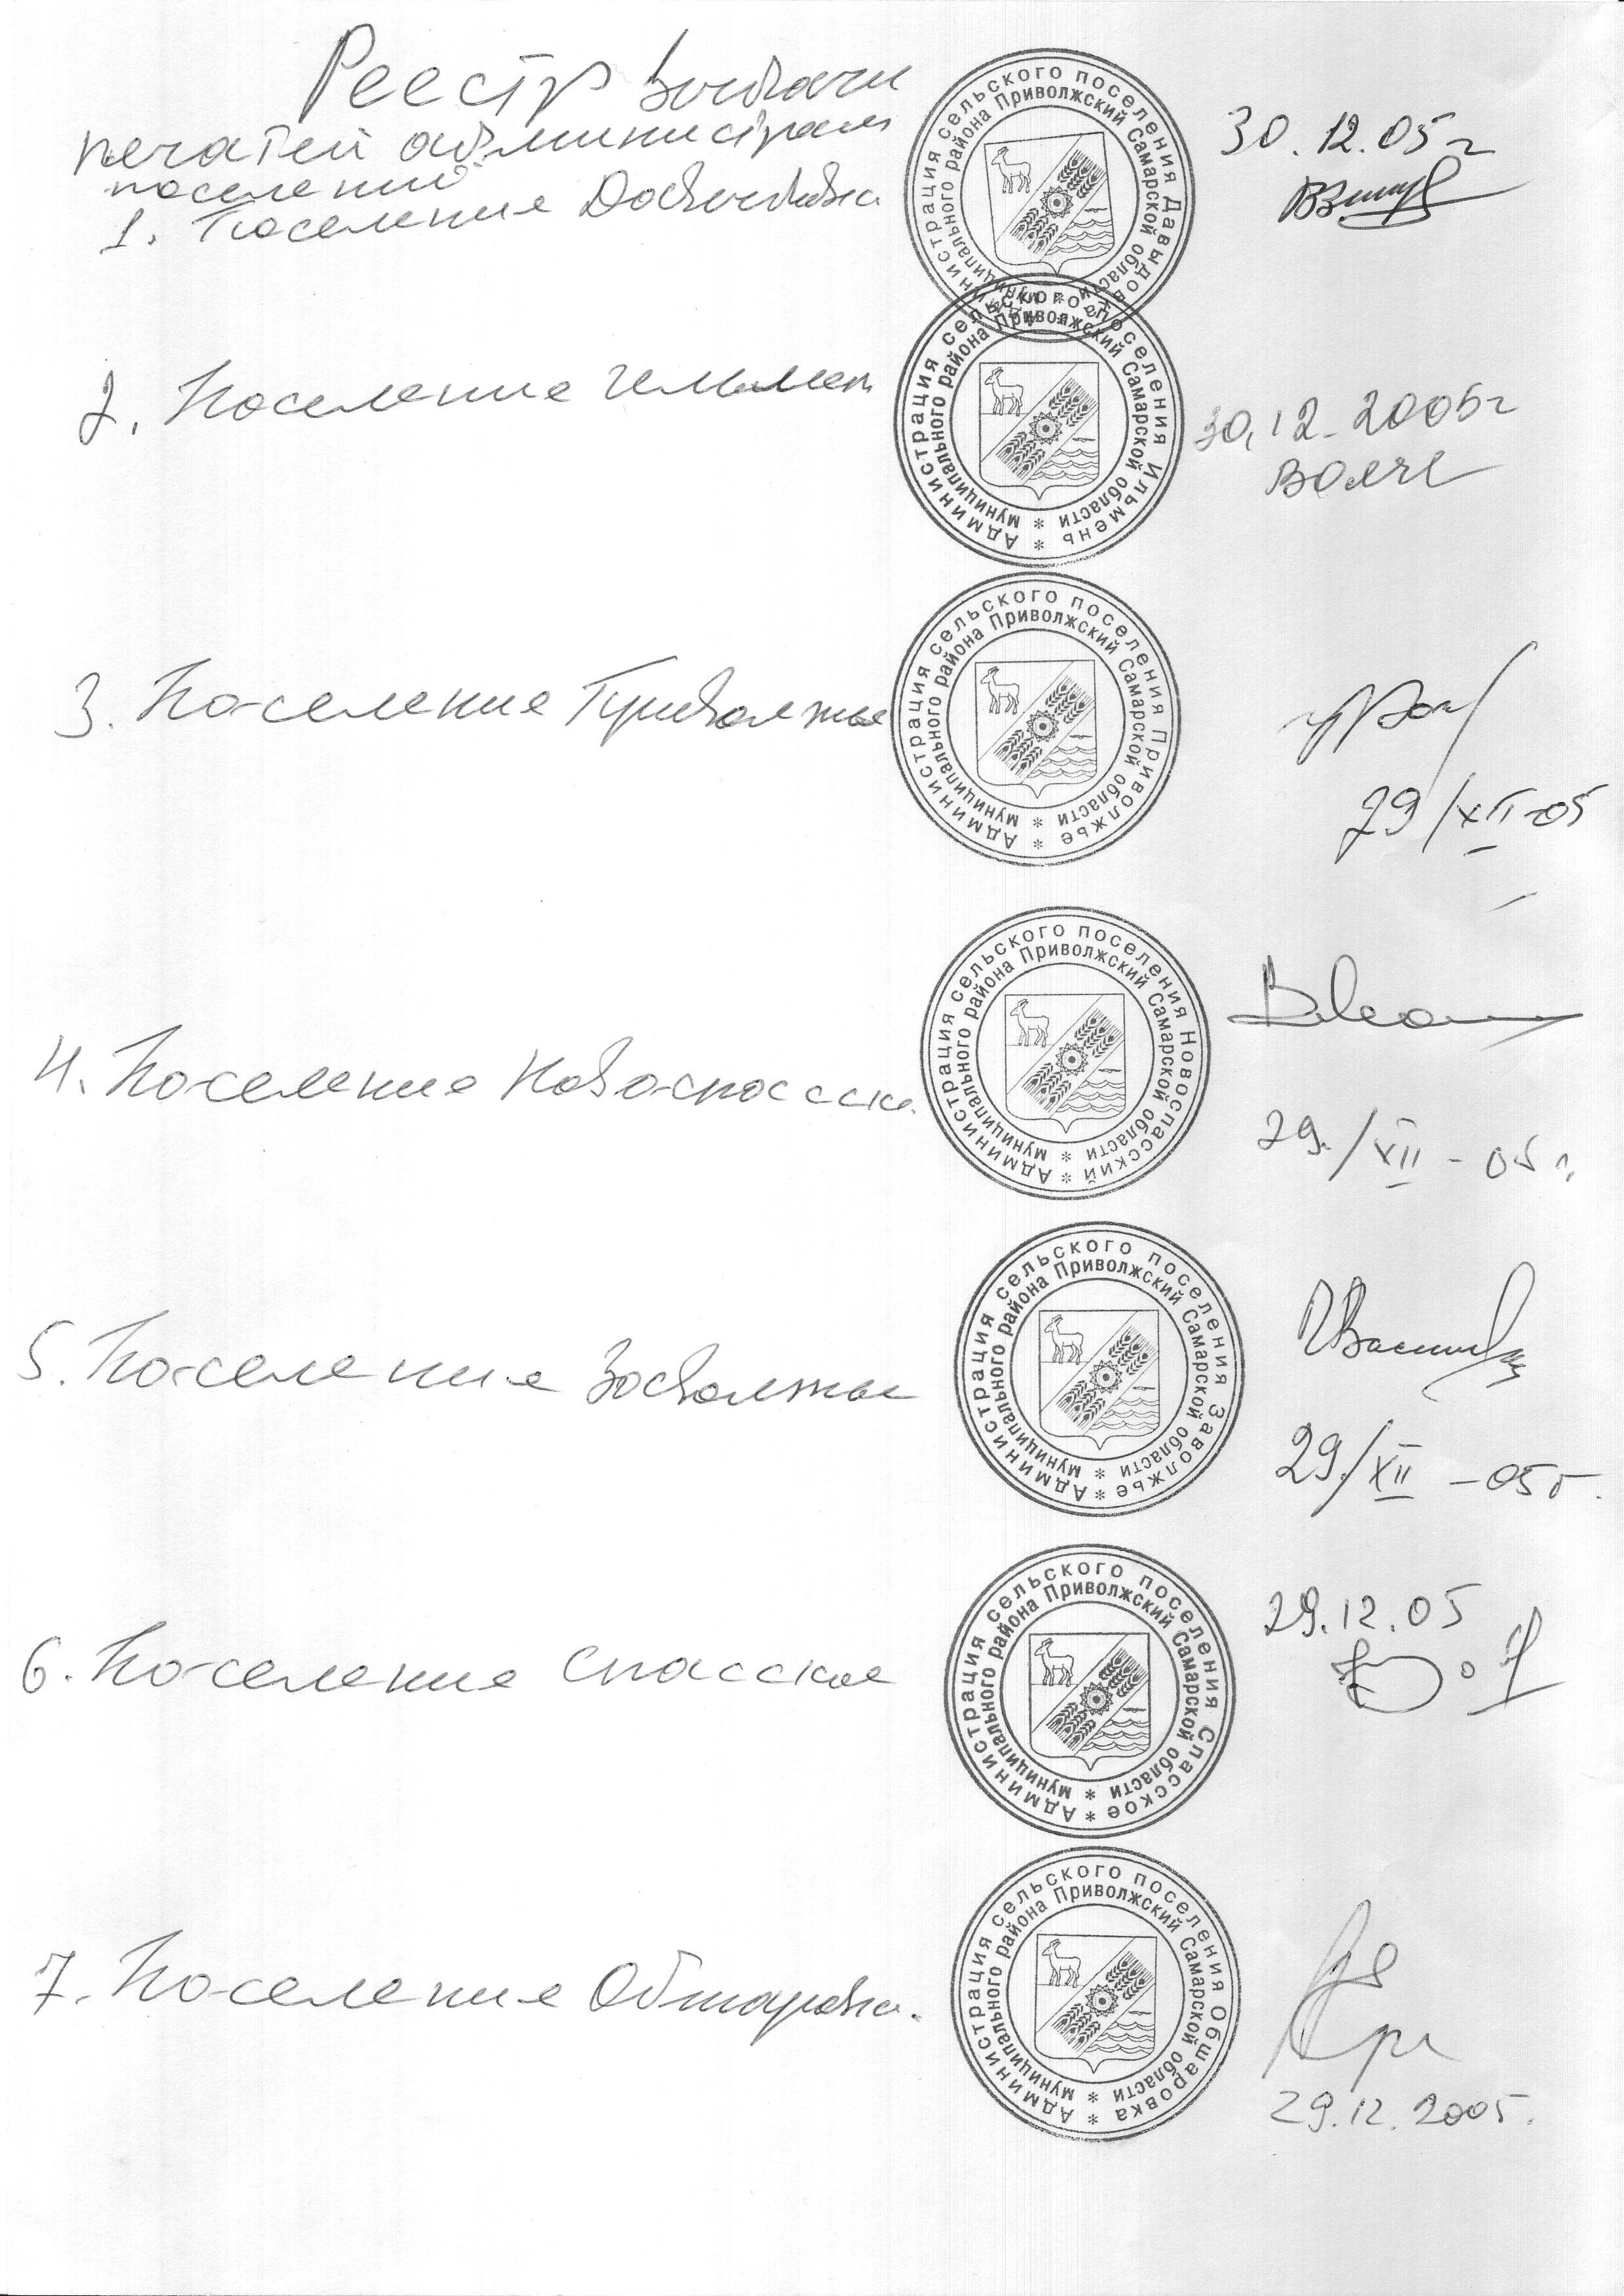 Реестр выдачи
печатей администрации
поселений
1. Поселение Давыдовка
Администрация сельского поселения Давыдовка *
муниципального района Приволжский Самарской области *
30.12.05г
2. Поселение Ильмень
Администрация сельского поселения Ильмень *
муниципального района Приволжский Самарской области *
30.12.2005г
3. Поселение Приволжье
Администрация сельского поселения Приволжье *
муниципального района Приволжский Самарской области *
29/XII-05
4. Поселение Новоспасский
Администрация сельского поселения Новоспасский *
муниципального района Приволжский Самарской области *
29./XII-05г.
5. Поселение Заволжье
Администрация сельского поселения Заволжье *
муниципального района Приволжский Самарской области *
29/XII-05г.
6. Поселение Спасское
Администрация сельского поселения Спасское *
муниципального района Приволжский Самарской области *
29.12.05
7. Поселение Обшаровка.
Администрация сельского поселения Обшаровка *
муниципального района Приволжский Самарской области *
29.12.2005.